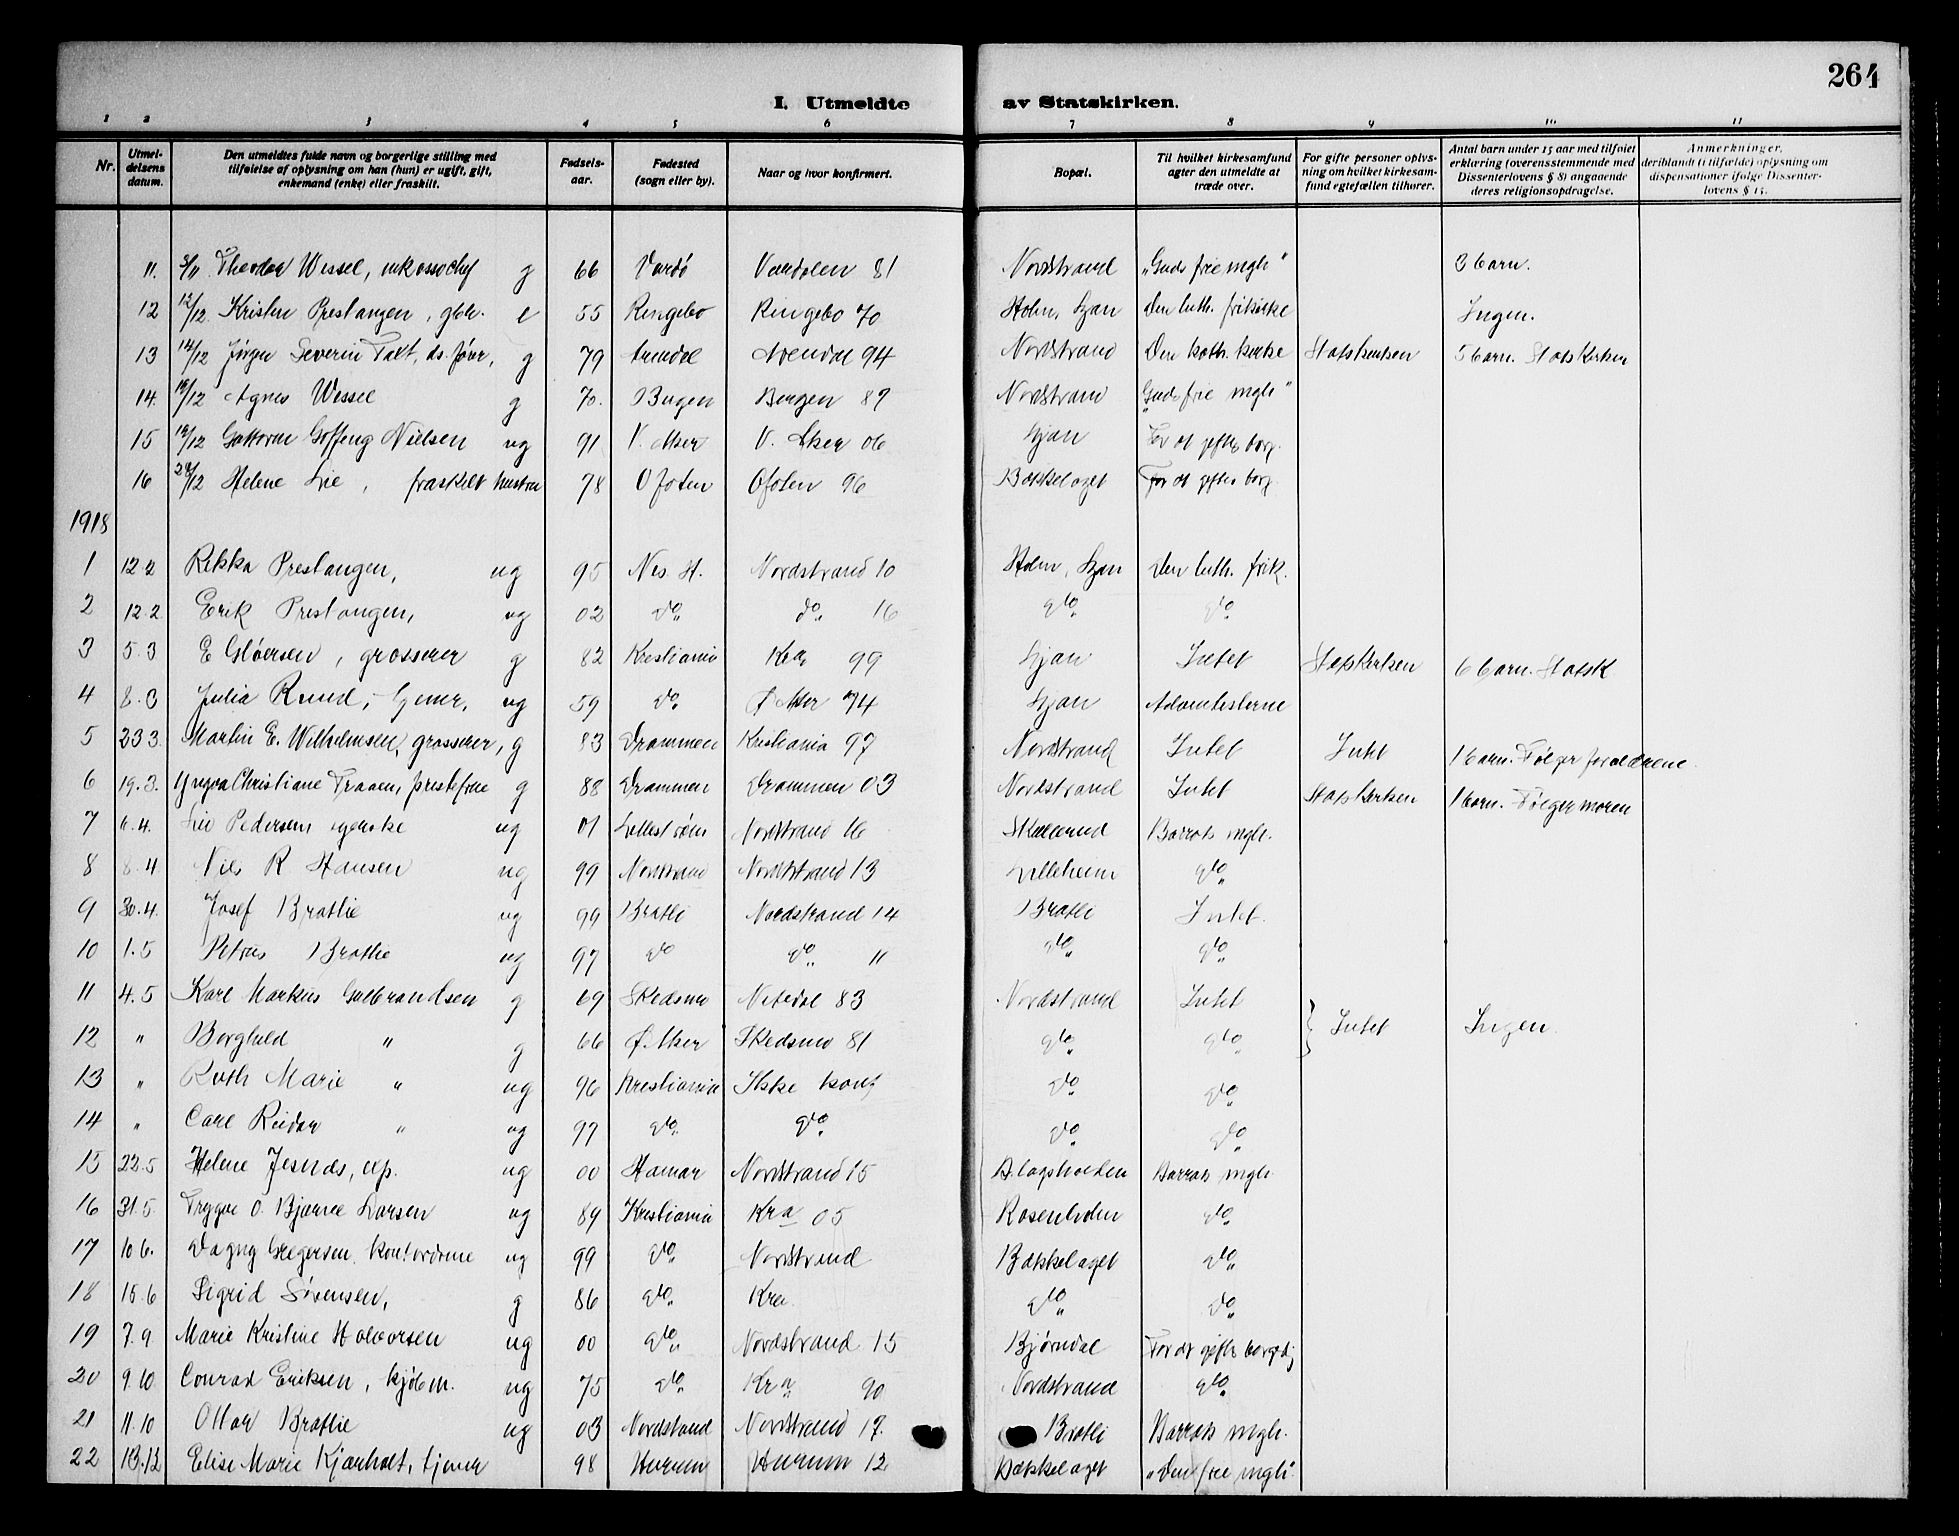 264
I. Utmeldte av Statskirken.
1 2 3 4 5 6 7 8 9 10 11
Nr.
Utmel-
delsens
datum.
Den utmeldtes fulde navn og borgerlige stilling med
tilføielse af oplysning om han (hun) er ugift, gift,
enkemand (enke) eller fraskilt.
Fødsels-
aar.
Fødested
(sogn eller by).
Naar og hvor konfirmert.
Bopæl.
Til hvilket kirkesamfund
agter den utmeldte at
træde over.
For gifte personer oplys-
ning om hvilket kirkesam-
fund egtefællen tilhører.
Antal barn under 15 aar med tilføiet
erklæring (overensstemmende med
Dissenterlovens § 8) angaaende
deres religionsopdragelse.
Anmerkninger,
deriblandt (i tilfælde) oplysning om
dispensationer ifølge Dissenter-
lovens § 15.
11. Theodor Wessel, inkassochef g 66 Vardø Verdalen 81 Nordstrand „Guds frie mgh" 3 barn.
12 12/12 Kristen Prestangen, gbr. e 55 Ringebo Ringebo 70 Holm, Ljan Den luth. frikirke Ingen.
13 14/12 Jørgen Severin g 79 Arendal Arendal 94 Nordstrand Den kath. kirke Statskirken 5 barn. Statskirken
14. Agnes Wessel g 70. Bergen Bergen 87 Nordstrand „Guds frie mgh"
15 Nielsen ug 91 V. Aker V. Aker 06 Ljan For at giftes borg.
16 Helene Lie, fraskilt hustru 78 Ofoten Ofoten 96 Bækkelaget For at giftes borg.
1918
1 12.2 Rikka Prestangen, ug 95 Nes H. Nordstrand 10 Holm, Ljan Den luth. frik.
2 12.2 Erik Prestangen, ug 02 do do 16 do do
3 5.3 E Gløersen, grosserer g 82 Kristiania Kra 99 Ljan Intet Statskirken 6 barn. Statsk
4 8.3 Julia Ruud, tjener, ug 59 do Ø Aker 74 Ljan Adventisterne
5 23 3. Martin E. Wilhelmsen, grosserer, g 83 Drammen Kristiania 97 Nordstrand Intet Intet 1 barn. Følger forældrene.
6 19.3. Yngva Christiane Traaen, prestefrue g 88 Drammen Drammen 03 Nordstrand Intet Statskirken 1 barn. Følger moren
7 6.4. Liv Pedersen ug 01 Lillestrøm Nordstrand 16 Barrats mgh.
8 8.4 Nils R Hansen ug 99 Nordstrand Nordstrand 13 Lilleheim do
9 30.4. Josef Bratlie ug 99 Bratli Nordstrand 14 Bratli Intet.
10 1.5 Petrus Bratlie ug 97 do do 11 do do
11 4.5 Karl Markus Gulbrandsen g 69 Skedsmo Nitedal 83 Nordstrand Intet
12 " Borghild " g 66 Ø. Aker Skedsmo 81 do do } Intet Ingen.
13 " Ruth Marie " ug 96 Kristiania Ikke konf do do
14 " Carl Reidar " ug 97 do do do do
15 22.5 Helene Jesnæs, exp. ug 00 Hamar Nordstrand 15 Barrats mgh.
16 31.5. Trygve O. Bjarne Larsen ug 89 Kristiania Kra 05 Rosenholm do
17 10 6. Dagny Gregersen. Kontordame ug 99 do Nordstrand Bækkelaget do
18 15.6 Sigrid Sørensen, g 86 do Kra do do
19 7.9 Marie Kristine Halvorsen ug 00 do Nordstrand 15 Bjørndal For at giftes borgelig
20 9.10 Conrad Eriksen, kjøbm. ug 75 do Kra 90 Nordstrand do
21 11.10 Ottar Bratlie ug 03 Nordstrand Nordstrand 17. Bratli Barrats mgh.
22 13.12 Elise Marie Kjærholt, tjener 98 Hurum Hurum 12 Bækkelaget „Den frie mgh".